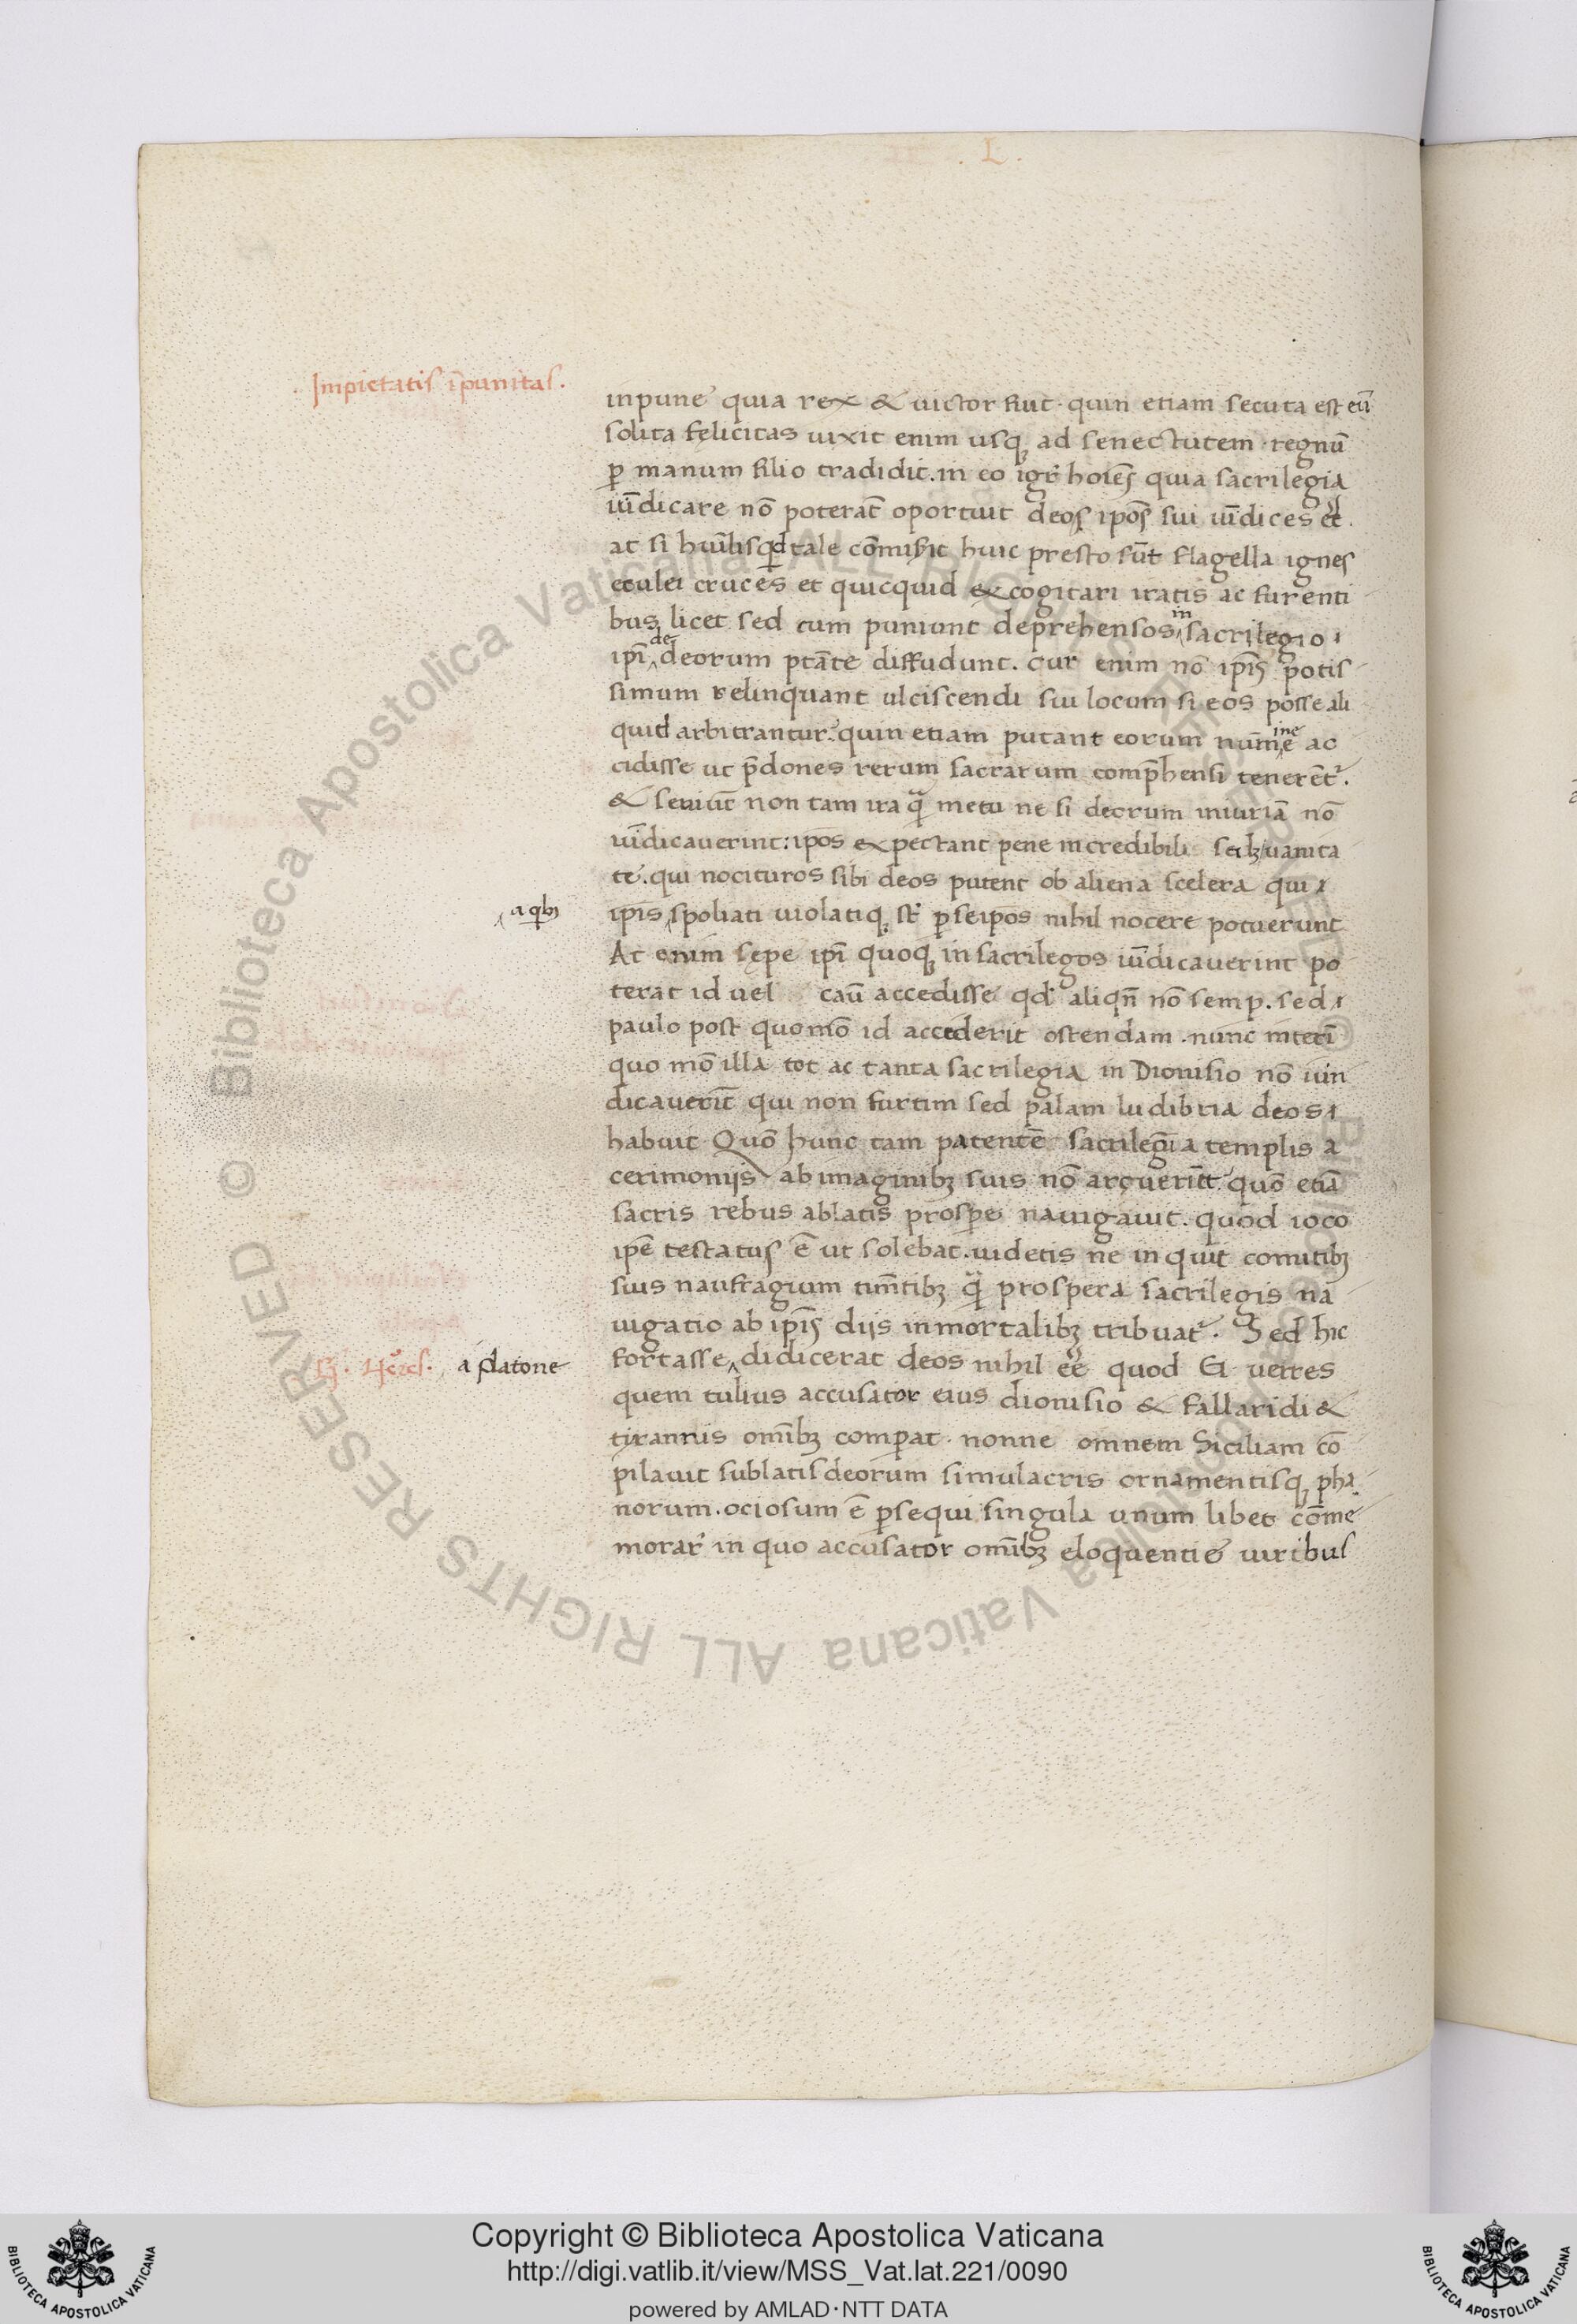 . L .
. Impietatis īpunitas .
inpune quia rex & uictor fuit · quin etiam secuta est eū
solita felicitas uixit enim usqꝫ ad senectutem · regnū
ꝑ manum filio tradidit . in eo igr̄ hoīes quia sacrilegia
uīdicare nō poterāt oportuit deos ip̄os sui uīdices eē .
at si huīlis qͥd tale cōmisit huic presto sūt flagella ignes
eculei cruces et quicquid excogitari iratis ac furenti
bus licet sed cum puniunt deprehensos in sacrilegio
ip̄i de deorum ptāte diffidunt . Cur enim nō ip̄is potis
simum relinquant ulciscendi sui locum si eos posse ali
quid arbitrantur . quin etiam putant eorum numine ac
cidisse ut p̄dones rerum sacrarum comp̄hensi tenerēt᷑ .
& seuiūt non tam ira qͣ metu ne si deorum iniuriā nō
uīdicauerint : ip̄os expectant pene incredibili sedꝫ uanita
te . qui nocituros sibi deos putent ob aliena scelera qui
a qͥbꝫ
ip̄is spoliati uiolatiqꝫ st̄ ꝑ seip̄os nihil nocere potuerunt
At enim sępe ip̄i quoqꝫ in sacrilegos uīdicauerint po
terat id uel caū accedisse qd̄ aliqn̄ nō semꝑ . sed
paulo post quomō id accederit ostendam . nunc interī
quo mō illa tot ac tanta sacrilegia in Dionisio nō uin
dicauerīt qui non furtim sed palam ludibria deos
habuit Quō hunc tam patentē sacrilegū a templis a
cerimoniis ab imaginibꝫ suis nō arcuerīt quō etiā
sacris rebus ablatis prospe nauigauit . quod ioco
ip̄e testatus ē ut solebat . uidetis ne inquit comitibꝫ
suis naufragium timētibꝫ qͣ prospera sacrilegis na
uigatio ab ip̄is diis inmortalibꝫ tribuat᷑ . Sed hic
a platone
fortasse didicerat deos nihil eē quod G uerres
quem tulius accusator eius dionisio & fallaridi &
tirannis omībꝫ comparat . nonne omnem Siciliam cō
pilauit sublatis deorum simulacris ornamentisqꝫ pha
norum . ociosum ē ꝑsequi singula unum libet cōme
morar̄ in quo accusator omībꝫ eloquentie uiribus
© Biblioteca Apostolica Vaticana ALL RIGHTS RESERVED
© Biblioteca Apostolica Vaticana ALL RIGHTS RESERVED
Copyright © Biblioteca Apostolica Vaticana
http://digi.vatlib.it/view/MSS_Vat.lat.221/0090
powered by AMLAD·NTT DATA
BIBLIOTECA APOSTOLICA VATICANA
BIBLIOTECA APOSTOLICA VATICANA